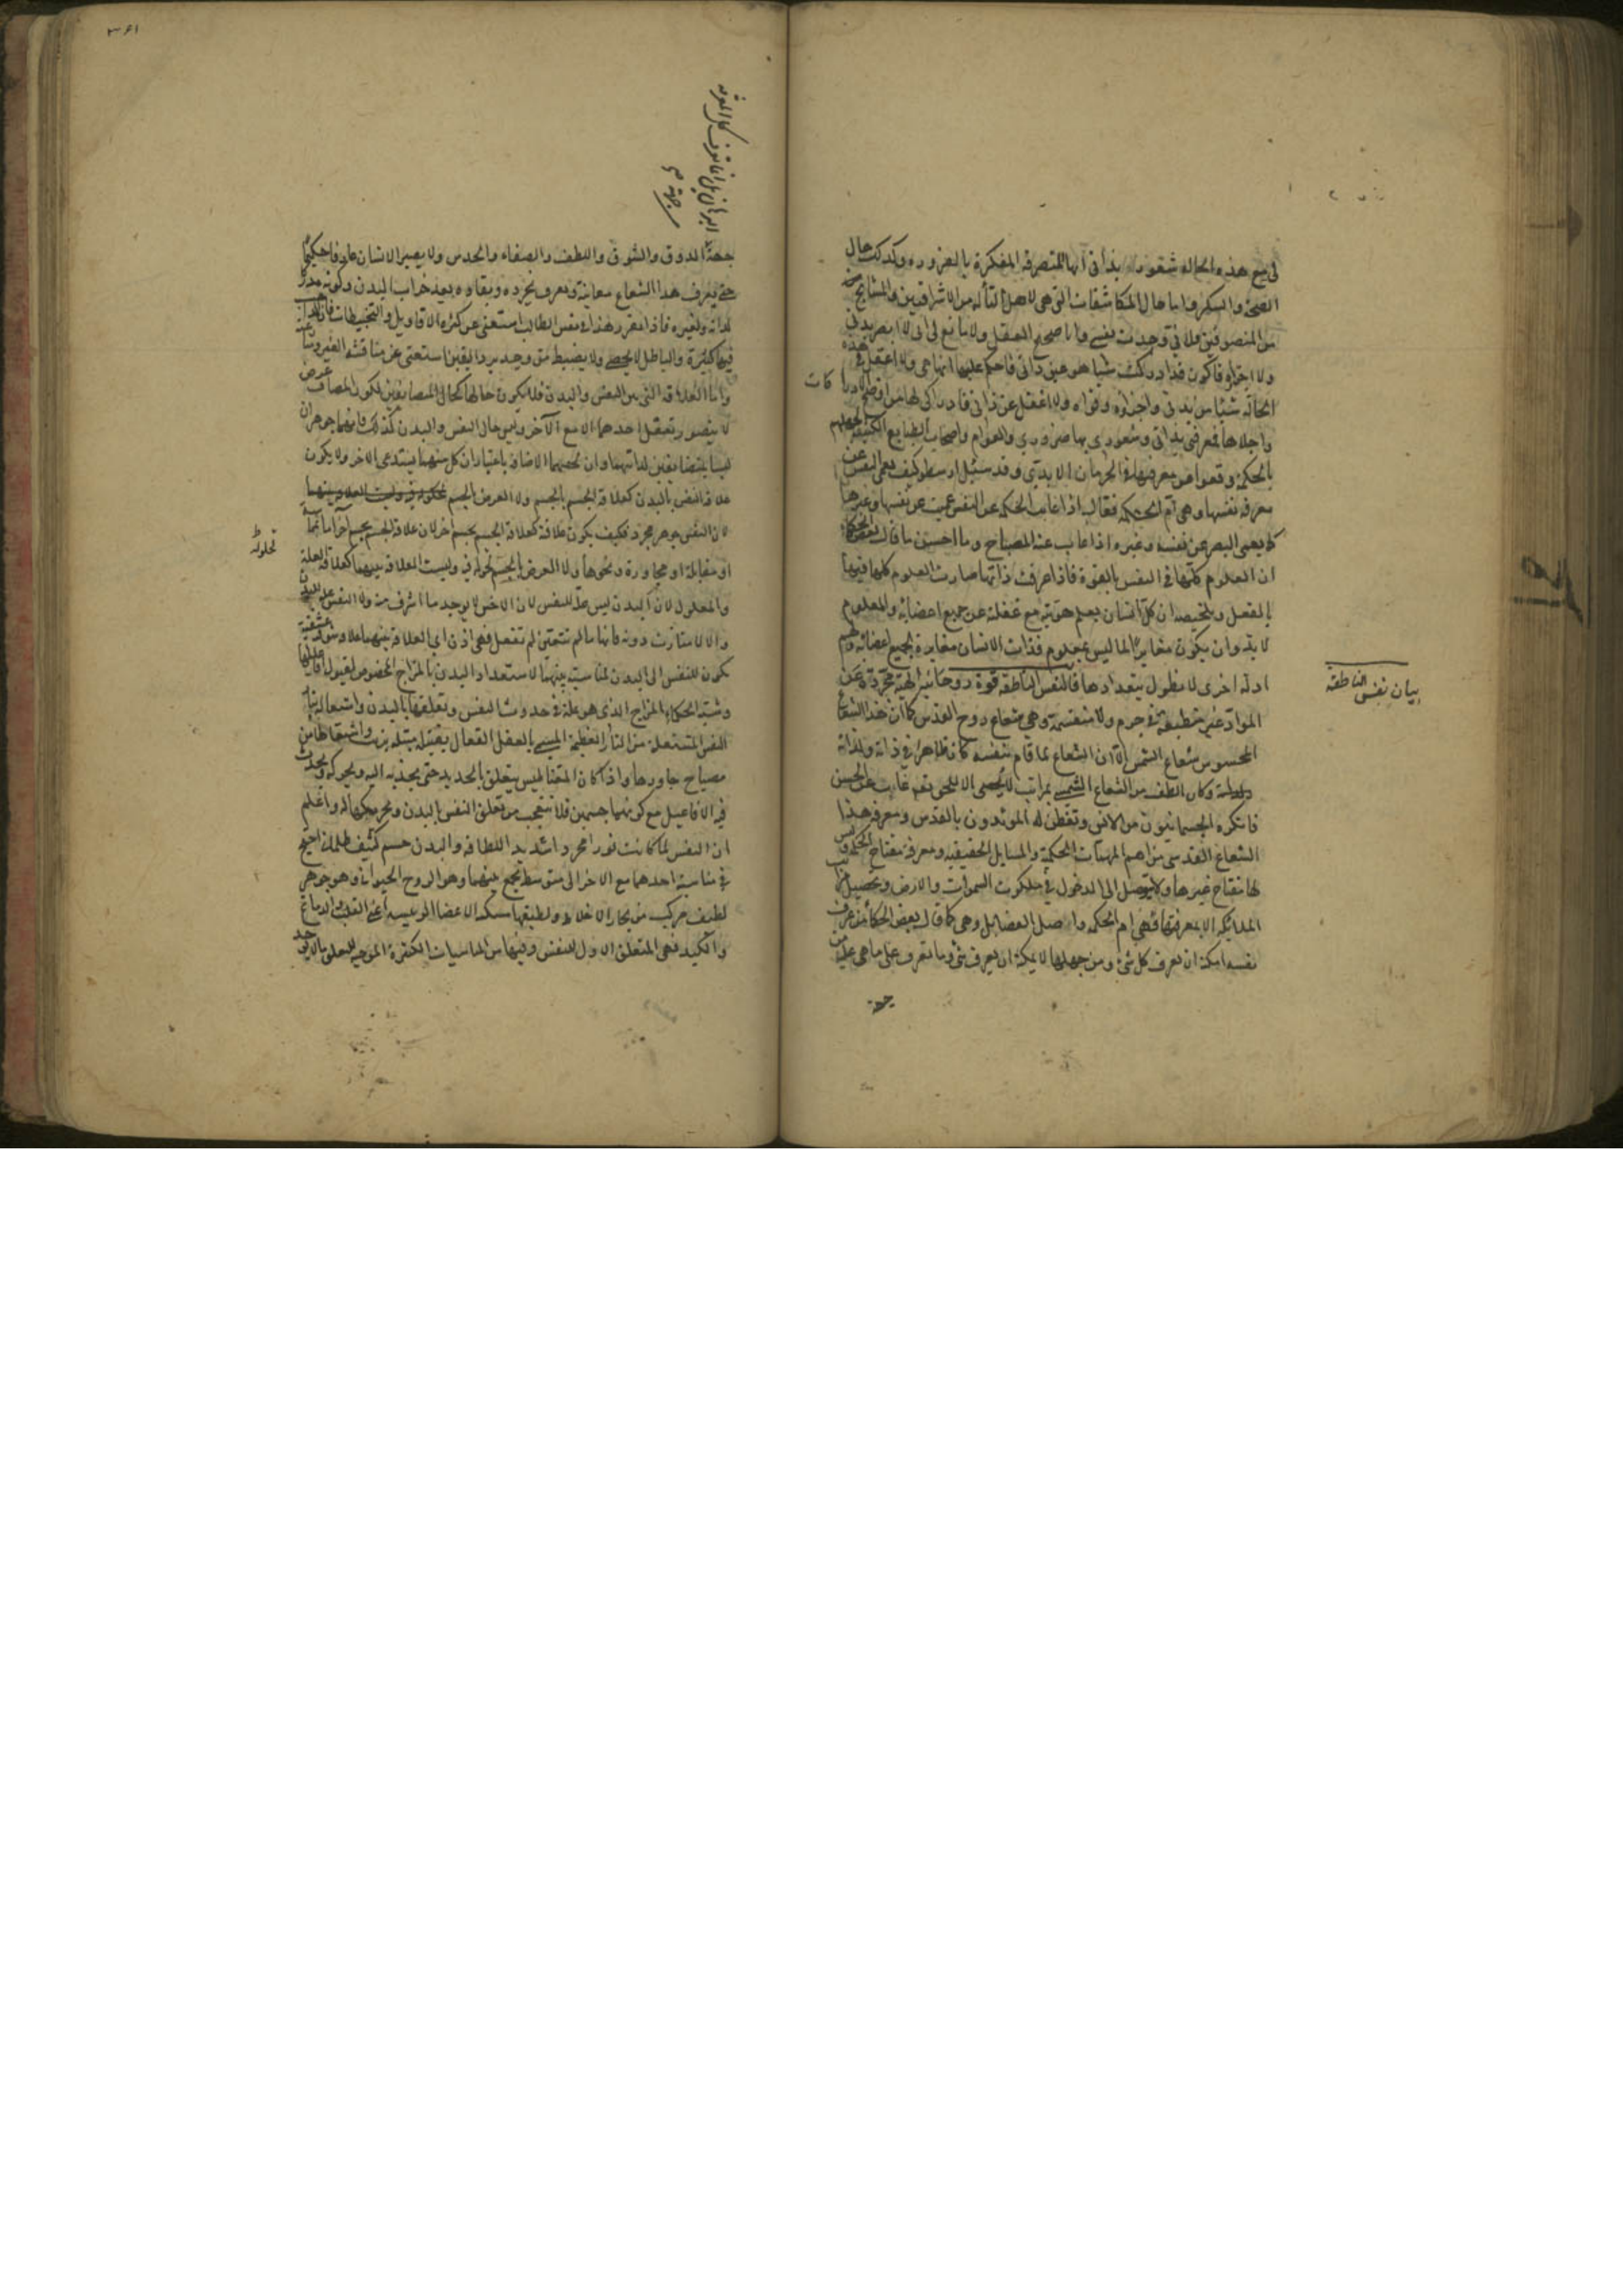 لي مع هذه الحالة شعور بذاتي انها المتصرفة المفكرة بالضرورة وكذلك حال
الصحة والسكر واما حال المكاشفات التي هي لاهل التأله من الاشراقيين والمشايخ
من المتصوفين فلاني وجدت نفسي وانا صحيح العقل ولا مانع لي اني لا ابصر بدني
ولا اجزاؤه فاكون قد ادركت شيئا هو عين ذاتي فاحكم عليها انها هي ولا اعقل في هذه
الحالة شيئا من بدني واجزاؤه وقواه ولا اغفل عن ذاتي فادراكي لها من اوضح الادراكات
واجلاها فمعرفتي بذاتي وشعوري بها ضروري والعوام واصحاب الطبايع الكثيفة لجهلهم
بالحكمة وقعوا عن معرفتها في الحرمان الابدي وقد سئل ارسطو كيف تعمى النفس عن
معرفة نفسها وهي ام الحكمة فقال اذا غابت الحكمة عن النفس عميت عن نفسها وغيرها
كما يعمى البصر عن نفسه وغيره اذا غاب عنه المصباح وما احسن ما قال بعض الحكماء
ان العلوم كلها في النفس بالقوة فاذا عرفت ذاتها صارت العلوم كلها فيها
بالفعل وتلخيصه ان كل انسان يعلم هويته مع غفلته عن جميع اعضائه والمعلوم
لا بد وان يكون مغايرا لما ليس بمعلوم فذات الانسان مغايرة لجميع اعضائه ولهم
ادلة اخرى لا نطول بتعدادها فالنفس الناطقة قوة روحانية الهية مجردة عن
المواد غير منطبعة في جرم ولا منقسمة وهي شعاع روح القدس كما ان هذا الشعاع
المحسوس شعاع الشمس الا ان الشعاع لما قام بنفسه كان ظاهرا في ذاته ولذاته
وكان الطف من الشعاع الشمسي بمراتب لا يحصى غاب عن الحس
فانكره الجسمانيون من الانس وتفطن له المؤيدون بالقدس ومعرفة هذا
الشعاع القدسي من اهم المهمات الحكمية والمسايل الحقيقية ومعرفة مفتاح الحكمة وليس
لها مفتاح غيرها ولا يتوصل الى الدخول في ملكوت السموات والارض وتحصيل
الملائكة الا بمعرفتها فهي ام الحكمة واصل الفضايل وهي كما قال بعض الحكماء من عرف
نفسه امكنه ان يعرف كل شيء ومن جهلها لا يمكنه ان يعرف شيء وما تعرف على ما هي عليه من
جهة
بيان نفس الناطقة
٣٦١
جهة الذوق والشوق واللطف والصفاء والحدس ولا يصير الانسان عارفا حكيما
حتى يعرف هذا الشعاع معاينة ويعرف تجرده وبقاءه بعد خراب البدن وكونه مدركا
لذاته ولغيره فاذا تقرر هذا في نفس الطالب استغنى عن كثرة الاقاويل والتخبيطات فان
فيها كثيرة والباطل لا يحصى ولا ينضبط متى وجد برد اليقين استغنى عن مناقشة الغير
واما العلاقة التي بين النفس والبدن فلا تكون حالها كحال المتضايفين لكون المضاف عرض
لا يتصور تعقل احدهما الا مع الآخر وليس حال النفس والبدن كذلك فانهما جوهران
ليسا بمتضايفين لذاتهما وان لحقهما الاضافة باعتبار ان كل منهما يستدعي الاخر ولا يكون
علاقة النفس بالبدن كعلاقة الجسم بالجسم ولا العرض بالجسم
لان النفس جوهر مجرد فكيف يكون علاقته كعلاقة الجسم بجسم اخر لان علاقة الجسم بجسم آخر اما مماسة
او مقابلة او مجاورة ونحوها ولا العرض بالجسم لحلوله فيه وليست العلاقة بينهما كعلاقة العلة
والمعلول لان البدن ليس علة للنفس لان الاخس لا يوجد ما اشرف منه ولا النفس علة للبدن
والا لامتازت دونه فانها ما لم تتعين لم تفعل فهي اذن اي العلاقة بينهما علاقة شوقية عشقية
تكون للنفس الى البدن لمناسبة بينهما لاستعداد البدن بالمزاج المخصوص لقبول افاعيلها
وشبه الحكماء المزاج الذي هو علة في حدوث النفس وتعلقها بالبدن واشتعاله بنار
النفس المشتعلة من النار العظيمة المسمى بالعقل الفعال بفتيلة مبتلة بزيت واشتعالها من
مصباح جاورها واذا كان المقناطيس يتعلق بالحديد حتى يجذبه اليه ويحركه ويحدث
فيه الافاعيل مع كونهما جسمين فلا تتعجب من تعلق النفس بالبدن وتحريكها له واعلم
ان النفس لما كانت نورا مجردا شديد اللطافة والبدن جسم كثيف ظلماني احتيج
في مناسبة احدهما مع الاخر الى متوسط يجمع بينهما وهو الروح الحيواني وهو جوهر
لطيف مركب من بخار الاخلاط ولطيفها مسكنه الاعضاء الرئيسية اعني القلب والدماغ
والكبد فهي المتعلق الاول للنفس وفيها من المناسبات الكثيرة الموجبة للتعلق ما لا يوجد